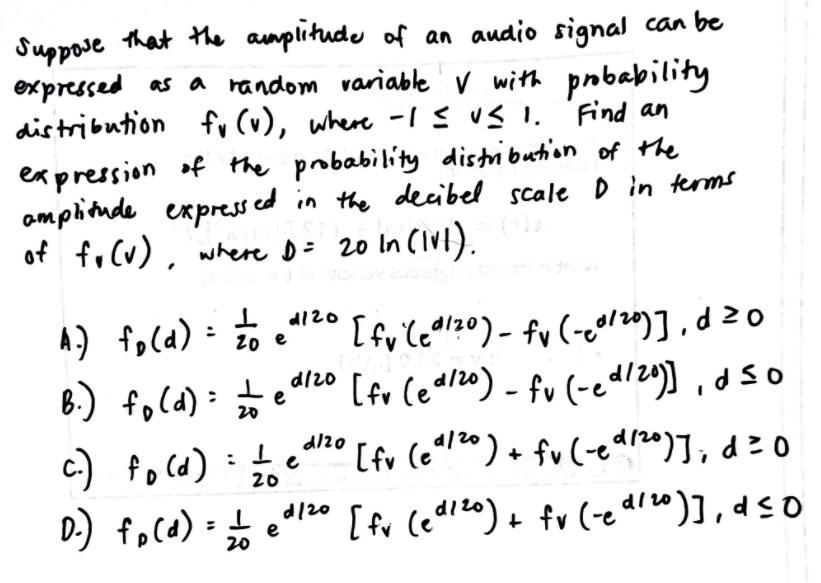 Suppose that the amplitude of an audio signal can be
expressed as a random variable V with probability
distribution fv (v), where -1 ≤ v ≤ 1. Find an
expression of the probability distribution of the
amplitude expressed in the decibel scale D in terms
of fv(v), where D = 20 ln (|V|).
A.) f_D(d) = 1/20 e^{d/20} [fv (e^{d/20}) - fv (-e^{d/20})], d ≥ 0
B.) f_D(d) = 1/20 e^{d/20} [fv (e^{d/20}) - fv (-e^{d/20})], d ≤ 0
C.) f_D(d) = 1/20 e^{d/20} [fv (e^{d/20}) + fv (-e^{d/20})], d ≥ 0
D.) f_D(d) = 1/20 e^{d/20} [fv (e^{d/20}) + fv (-e^{d/20})], d ≤ 0